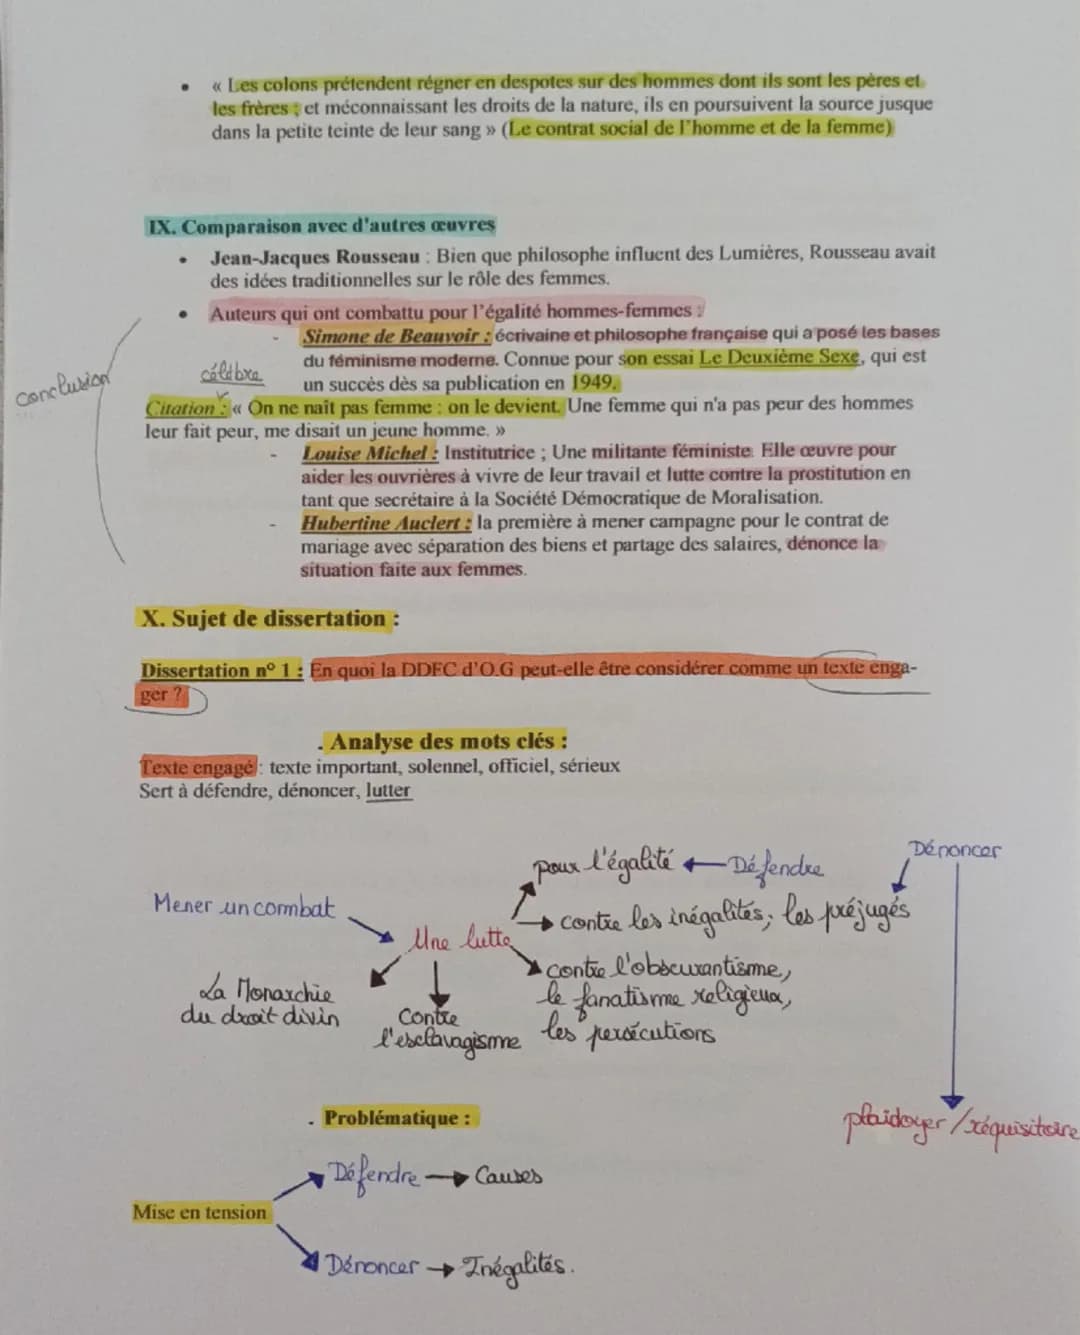 • « Les colons prétendent régner en despotes sur des hommes dont ils sont les pères et
les frères ; et méconnaissant les droits de la nature, ils en poursuivent la source jusque
dans la petite teinte de leur sang » (Le contrat social de l'homme et de la femme)
IX. Comparaison avec d'autres œuvres
• Jean-Jacques Rousseau : Bien que philosophe influent des Lumières, Rousseau avait
des idées traditionnelles sur le rôle des femmes.
• Auteurs qui ont combattu pour l'égalité hommes-femmes :
- Simone de Beauvoir : écrivaine et philosophe française qui a posé les bases
du féminisme moderne. Connue pour son essai Le Deuxième Sexe, qui est
un succès dès sa publication en 1949.
conclusion
célèbre
Citation : « On ne naît pas femme : on le devient. Une femme qui n'a pas peur des hommes
leur fait peur, me disait un jeune homme. »
- Louise Michel : Institutrice ; Une militante féministe. Elle œuvre pour
aider les ouvrières à vivre de leur travail et lutte contre la prostitution en
tant que secrétaire à la Société Démocratique de Moralisation.
- Hubertine Auclert : la première à mener campagne pour le contrat de
mariage avec séparation des biens et partage des salaires, dénonce la
situation faite aux femmes.
X. Sujet de dissertation :
Dissertation n° 1 : En quoi la DDFC d'O.G peut-elle être considérer comme un texte enga-
ger ?
. Analyse des mots clés :
Texte engagé : texte important, solennel, officiel, sérieux
Sert à défendre, dénoncer, lutter
Dénoncer
pour l'égalité ← Défendre
Mener un combat
contre les inégalités, les préjugés
Une lutte
contre l'obscurantisme,
le fanatisme religieux,
les persécutions
La Monarchie
du droit divin
Contre
l'esclavagisme
plaidoyer / réquisitoire
. Problématique :
Défendre → Causes
Mise en tension
Dénoncer → Inégalités.